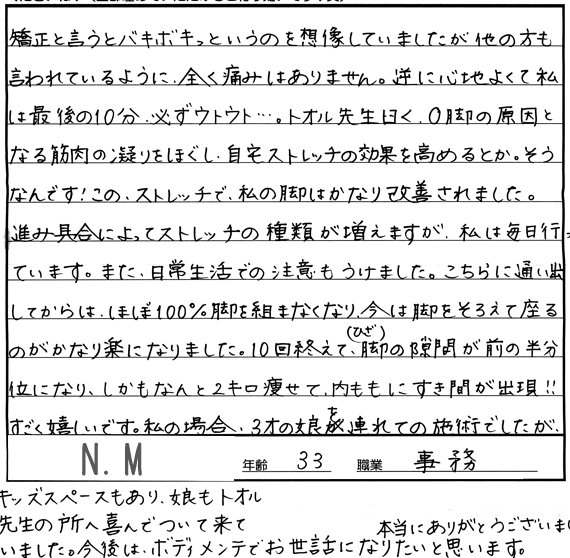 矯正と言うとバキボキっというのを想像していましたが他の方も
言われているように、全く痛みはありません。逆に心地よくて私
は最後の10分、必ずウトウト…。トオル先生曰く、O脚の原因と
なる筋肉の凝りをほぐし、自宅ストレッチの効果を高めるとか。そう
なんです!この、ストレッチで、私の脚はかなり改善されました。
進み具合によってストレッチの種類が増えますが、私は毎日行っ
ています。また、日常生活での注意もうけました。こちらに通い出
してからは、ほぼ100%脚を組まなくなり、今は脚をそろえて座る
のがかなり楽になりました。10回終えて、脚(ひざ)の隙間が前の半分
位になり、しかもなんと2キロ痩せて、内ももにすき間が出現!!
すごく嬉しいです。私の場合、3才の娘を連れての施術でしたが、
N.M 年齢 33 職業 事務
キッズスペースもあり、娘もトオル
先生の所へ喜んでついて来て
本当にありがとうございま
いました。今後は、ボディメンテでお世話になりたいと思います。